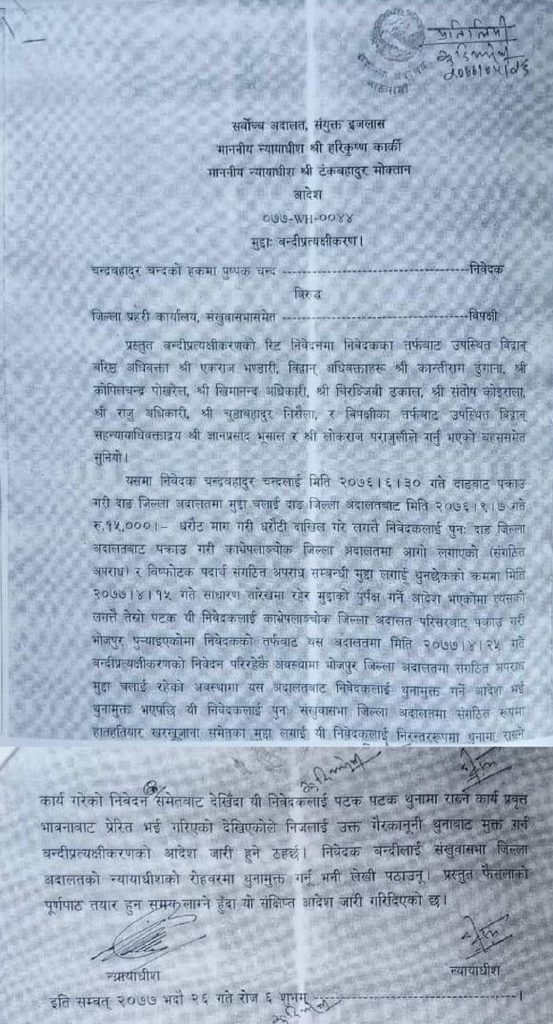 प्रतिलिपी
सर्वोच्च अदालत, संयुक्त इजलास
माननीय न्यायाधीश श्री हरिकृष्ण कार्की
माननीय न्यायाधीश श्री टंकबहादुर मोक्तान
आदेश
०७७-WH-००४४
मुद्दाः बन्दीप्रत्यक्षीकरण।
चन्द्रबहादुर चन्दको हकमा पुष्पक चन्द ------------------------------निवेदक
विरुद्ध
जिल्ला प्रहरी कार्यालय, संखुवासभासमेत ------------------------------विपक्षी
प्रस्तुत बन्दीप्रत्यक्षीकरणको रिट निवेदनमा निवेदकका तर्फबाट उपस्थित विद्वान्
वरिष्ठ अधिवक्ता श्री एकराज भण्डारी, विद्वान् अधिवक्ताहरू श्री कान्तीराम ढुंगाना, श्री
कोपिलचन्द्र पोखरेल, श्री खिमानन्द अधिकारी, श्री चिरञ्जिवी ढकाल, श्री संतोष कोइराला,
श्री राजु अधिकारी, श्री चुडाबहादुर निरौला, र विपक्षीका तर्फबाट उपस्थित विद्वान्
सहन्यायाधिवक्ताद्वय श्री ज्ञानप्रसाद भुसाल र श्री लोकराज पराजुलीले गर्नु भएको बहससमेत
सुनियो।
यसमा निवेदक चन्द्रबहादुर चन्दलाई मिति २०७६।६।३० गते दाङबाट पक्राउ
गरी दाङ जिल्ला अदालतमा मुद्दा चलाई दाङ जिल्ला अदालतबाट मिति २०७६।९।७ गते
रु.१५,०००।- धरौट माग गरी धरौटी दाखिल गरे लगत्तै निवेदकलाई पुनः दाङ जिल्ला
अदालतबाट पक्राउ गरी काभ्रेपलाञ्चोक जिल्ला अदालतमा आगो लगाएको (संगठित
अपराध) र विष्फोटक पदार्थ संगठित अपराध सम्वन्धी मुद्दा लगाई थुनछेकको क्रममा मिति
२०७७।४।१५ गते साधारण तारेखमा रहेर मुद्दाको पुर्पक्ष गर्ने आदेश भएकोमा त्यसको
लगत्तै तेस्रो पटक यी निवेदकलाई काभ्रेपलाञ्चोक जिल्ला अदालत परिसरबाट पक्राउ गरी
भोजपुर पुऱ्याइएकोमा निवेदकको तर्फबाट यस अदालतमा मिति २०७७।४।२५ गते
बन्दीप्रत्यक्षीकरणको निवेदन परिरहेकै अवस्थामा भोजपुर जिल्ला अदालतमा संगठित अपराध
मुद्दा चलाई रहेको अवस्थामा यस अदालतबाट निवेदकलाई थुनामुक्त गर्ने आदेश भई
थुनामुक्त भएपछि यी निवेदकलाई पुनः संखुवासभा जिल्ला अदालतमा संगठित रूपमा
हातहतियार खरखजाना समेतका मुद्दा लगाई यी निवेदकलाई निरन्तररूपमा थुनामा राख्ने
कार्य गरेको निवेदन समेतबाट देखिँदा यी निवेदकलाई पटक पटक थुनामा राख्ने कार्य प्रवृत्त
भावनाबाट प्रेरित भई गरिएको देखिएकोले निजलाई उक्त गैरकानूनी थुनाबाट मुक्त गर्न
बन्दीप्रत्यक्षीकरणको आदेश जारी हुने ठहर्छ। निवेदक बन्दीलाई संखुवासभा जिल्ला
अदालतको न्यायाधीशको रोहवरमा थुनामुक्त गर्नू भनी लेखी पठाउनू। प्रस्तुत फैसलाको
पूर्णपाठ तयार हुन समय लाग्ने हुँदा यो संक्षिप्त आदेश जारी गरिदिएको छ।
न्यायाधीश
न्यायाधीश
इति सम्वत् २०७७ भदौ २६ गते रोज ६ शुभम् ------------------------------।